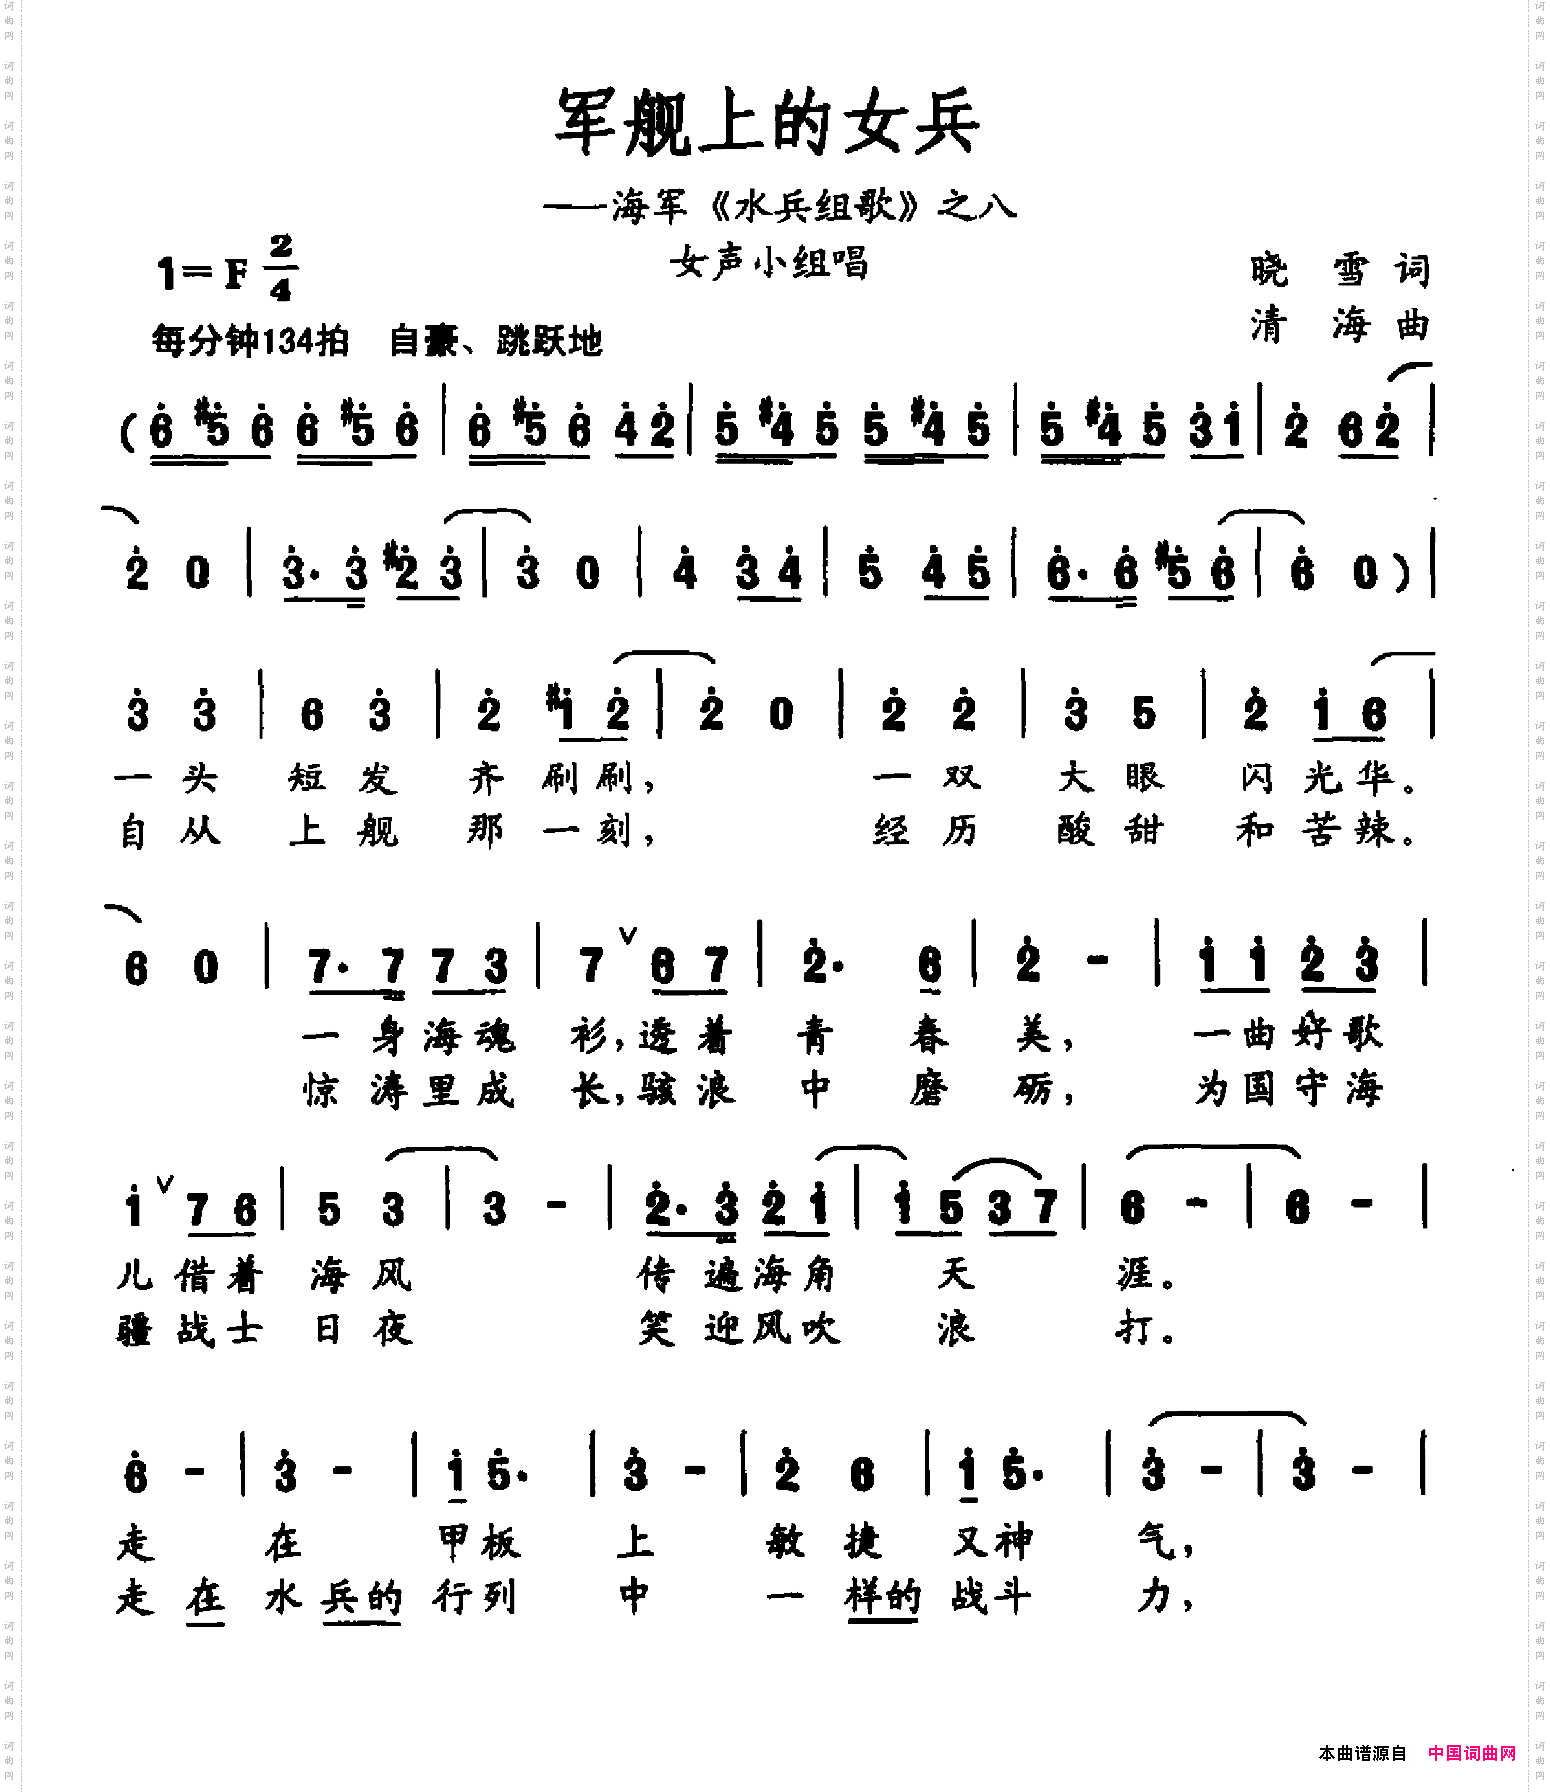 军舰上的女兵
——海军《水兵组歌》之八
女声小组唱
1=F 2/4
晓 雪 词
清 海 曲
每分钟134拍 自豪、跳跃地
( 6̇ #5̇ 6̇ 6̇ #5̇ 6̇ | 6̇ #5̇ 6̇ 4̇ 2̇ | 5̇ #4̇ 5̇ 5̇ #4̇ 5̇ | 5̇ #4̇ 5̇ 3̇ 1̇ | 2̇ 6 2̇ |
2̇ 0 | 3̇. 3̇ #2̇ 3̇ | 3̇ 0 | 4̇ 3̇ 4̇ | 5̇ 4̇ 5̇ | 6̇. 6̇ #5̇ 6̇ | 6̇ 0 ) |
3̇ 3̇ | 6 3̇ | 2̇ #1̇ 2̇ | 2̇ 0 | 2̇ 2̇ | 3̇ 5 | 2̇ 1̇ 6 |
一头 短发 齐刷刷， 一双 大眼 闪光华。
自从 上舰 那一刻， 经历 酸甜 和苦辣。
6 0 | 7. 7 7 3 | 7 ∨ 6 7 | 2̇. 6 | 2̇ - | 1̇ 1̇ 2̇ 3̇ |
一身海魂 衫，透着 青春 美， 一曲好歌
惊涛里成 长，骇浪 中磨 砺， 为国守海
1̇ ∨ 7 6 | 5 3 | 3 - | 2̇. 3̇ 2̇ 1̇ | 1̇ 5 3 7 | 6 - | 6 - |
儿借着 海风 传遍海角 天 涯。
疆战士 日夜 笑迎风吹 浪 打。
6̇ - | 3̇ - | 1̇ 5̇. | 3̇ - | 2̇ 6 | 1̇ 5̇. | 3̇ - | 3̇ - |
走 在 甲板 上 敏捷 又神 气，
走在 水兵的 行列 中 一样的 战斗 力，
本曲谱源自 中国词曲网